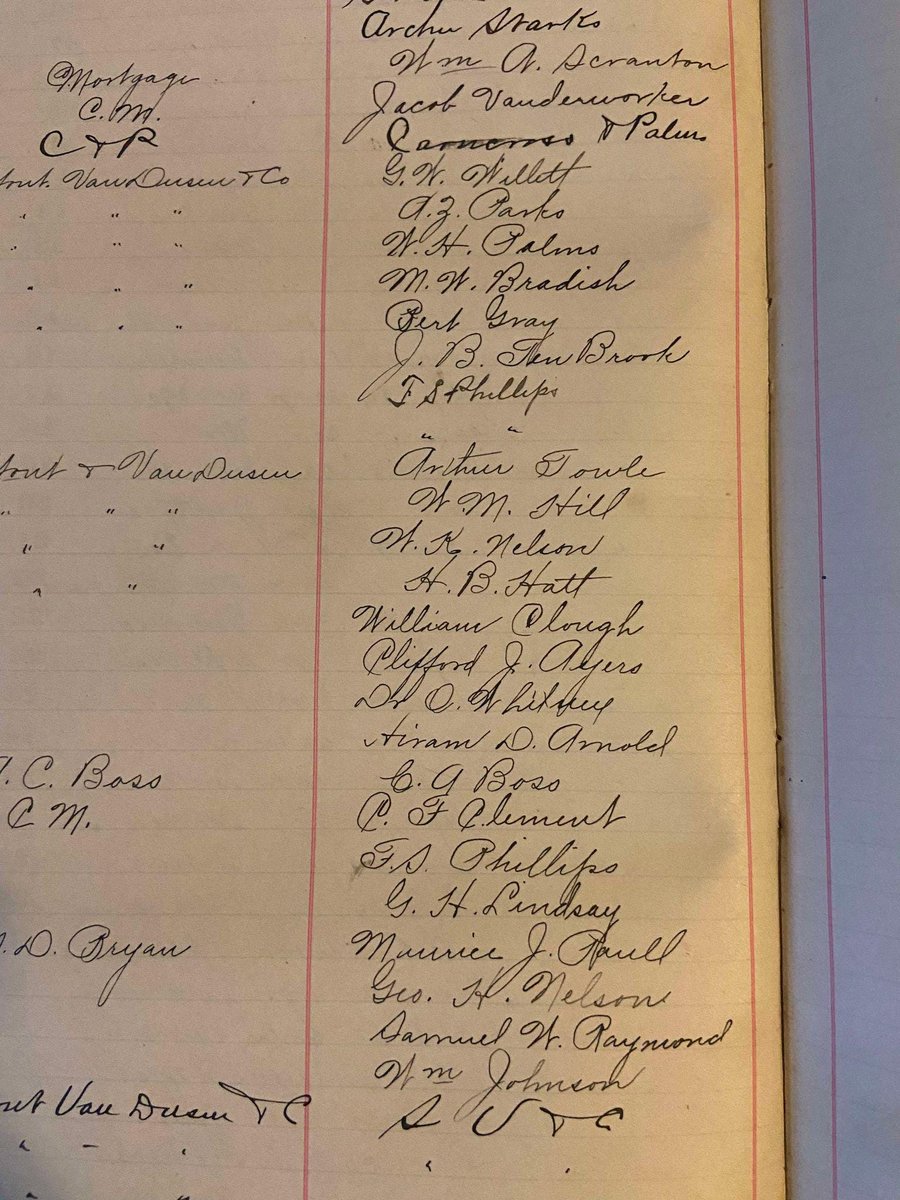 Archie Starks
Wm A. Scranton
Mortgage
Jacob Vanderworker
C. M.
C & R & Palms
Van Dusen & Co G. W. Willett
" " " A. Z. Parks
" " " W. H. Palms
" " " M. W. Bradish
" " " Bert Gray
J. B. Ten Brook
F S Phillips
" "
& Van Dusen Arthur Towle
" " " W. M. Hill
" " W. K. Nelson
" " H. B. Hatt
William Clough
Clifford J. Ayers
Dr O. Whitney
Hiram D. Arnold
C. Boss C. A Boss
C M. C. F Clement
F. S. Phillips
G. H. Lindsay
D. Bryan Maurice J.
Geo. H. Nelson
Samuel W. Raymond
Wm Johnson
Van Dusen & C S V & C
" " " " "